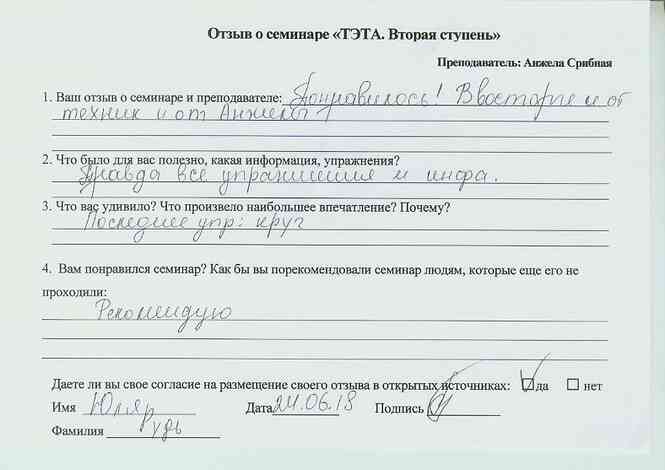 Отзыв о семинаре «ТЭТА. Вторая ступень»
Преподаватель: Анжела Срибная
1. Ваш отзыв о семинаре и преподавателе: Понравилось! В восторге и от
техник и от Анжелы!
2. Что было для вас полезно, какая информация, упражнения?
Правда все упражнения и инфа.
3. Что вас удивило? Что произвело наибольшее впечатление? Почему?
Последнее упр: круг
4. Вам понравился семинар? Как бы вы порекомендовали семинар людям, которые еще его не
проходили:
Рекомендую
Даете ли вы свое согласие на размещение своего отзыва в открытых источниках: да нет
Имя Дата 24.06.18 Подпись
Фамилия Рудь